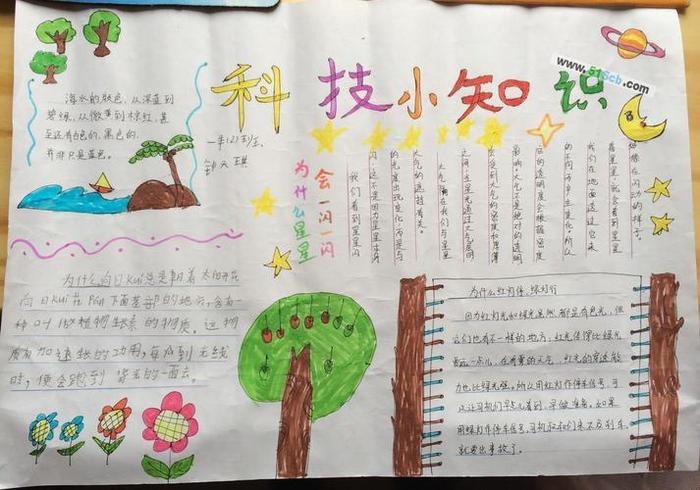 科技小知识
www.516cb.com
海水的颜色，从深蓝到
碧绿，从微黄到棕红，甚
至还有白色的，黑色的，
并非只是蓝色。
一年(2)班
为什么星星
会一闪一闪
我们看到星星闪
闪，这不是因为星星本身
的光度出现变化，而是与
大气的遮挡有关。
大气隔在我们与星星
之间，当星光通过大气层时
会受到大气的密度和厚薄
影响。大气不是绝对的透明
它的透明度会根据密度
的不同而产生变化。所以
我们在地面透过它来
看星星，就会看到星星
好像在闪动的样子。
为什么向日kui总是朝着太阳开花
向日kui花
下面茎部的地方，含有一
种叫
植物生长素的物质。这物
质有加速
的功用，每次遇到光线
时，便会跑到背光的一面去。
为什么红灯停，绿灯行
因为红灯光和绿光虽然都是有色光，但
它们也有不一样的地方，红光传得比绿光
更远一点儿，在有雾的天气，红光的穿透能
力也比绿光强。所以用红灯作停车信号，可
以让司机们早点儿看到，早做准备。如果
用绿灯作停车信号，司机叔叔们来不及刹车，
就要出事故了。